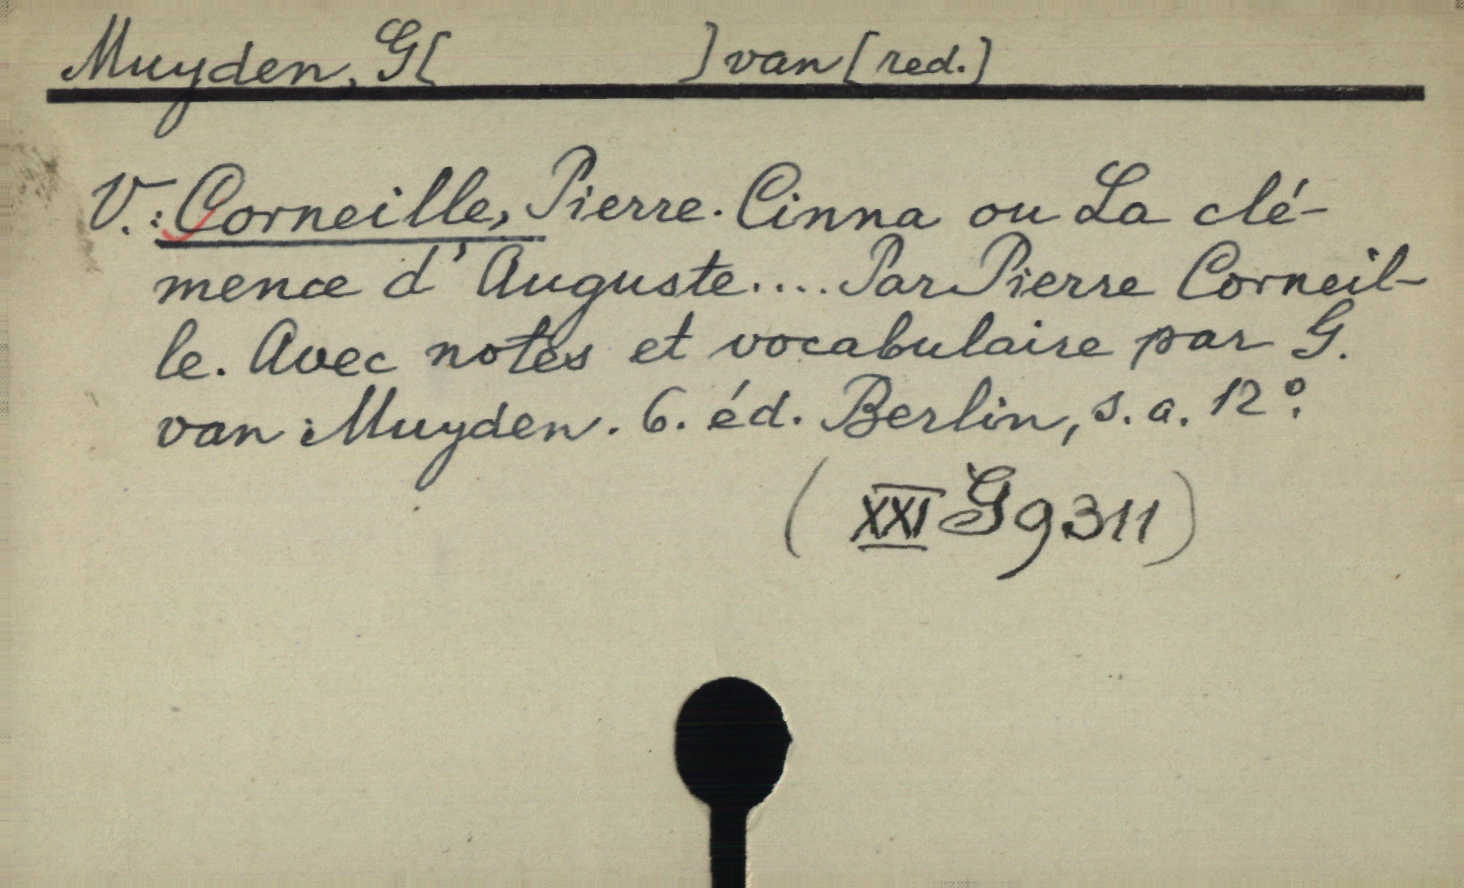 Muyden, G[ ] van [red.]
V.: Corneille, Pierre. Cinna ou La clé-
mence d'Auguste.... Par Pierre Corneil-
le. Avec notes et vocabulaire par G.
van Muyden. 6. éd. Berlin, s. a. 12°.
(XXI G 9311)